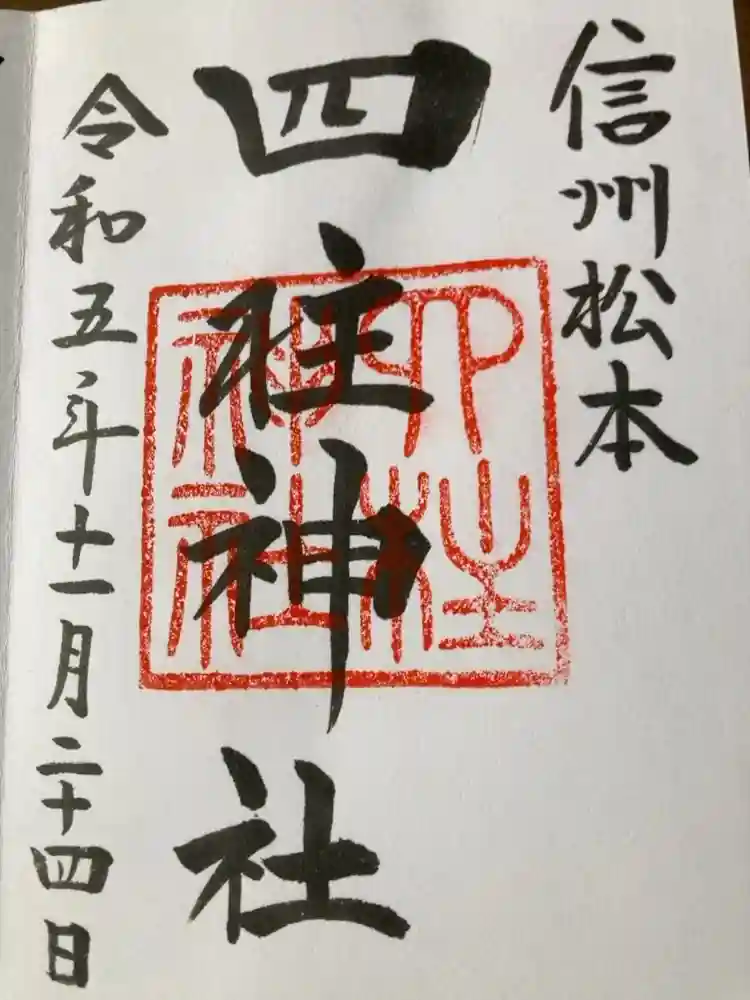 信州松本
四柱神社
四柱
神社
令和五年十一月二十四日